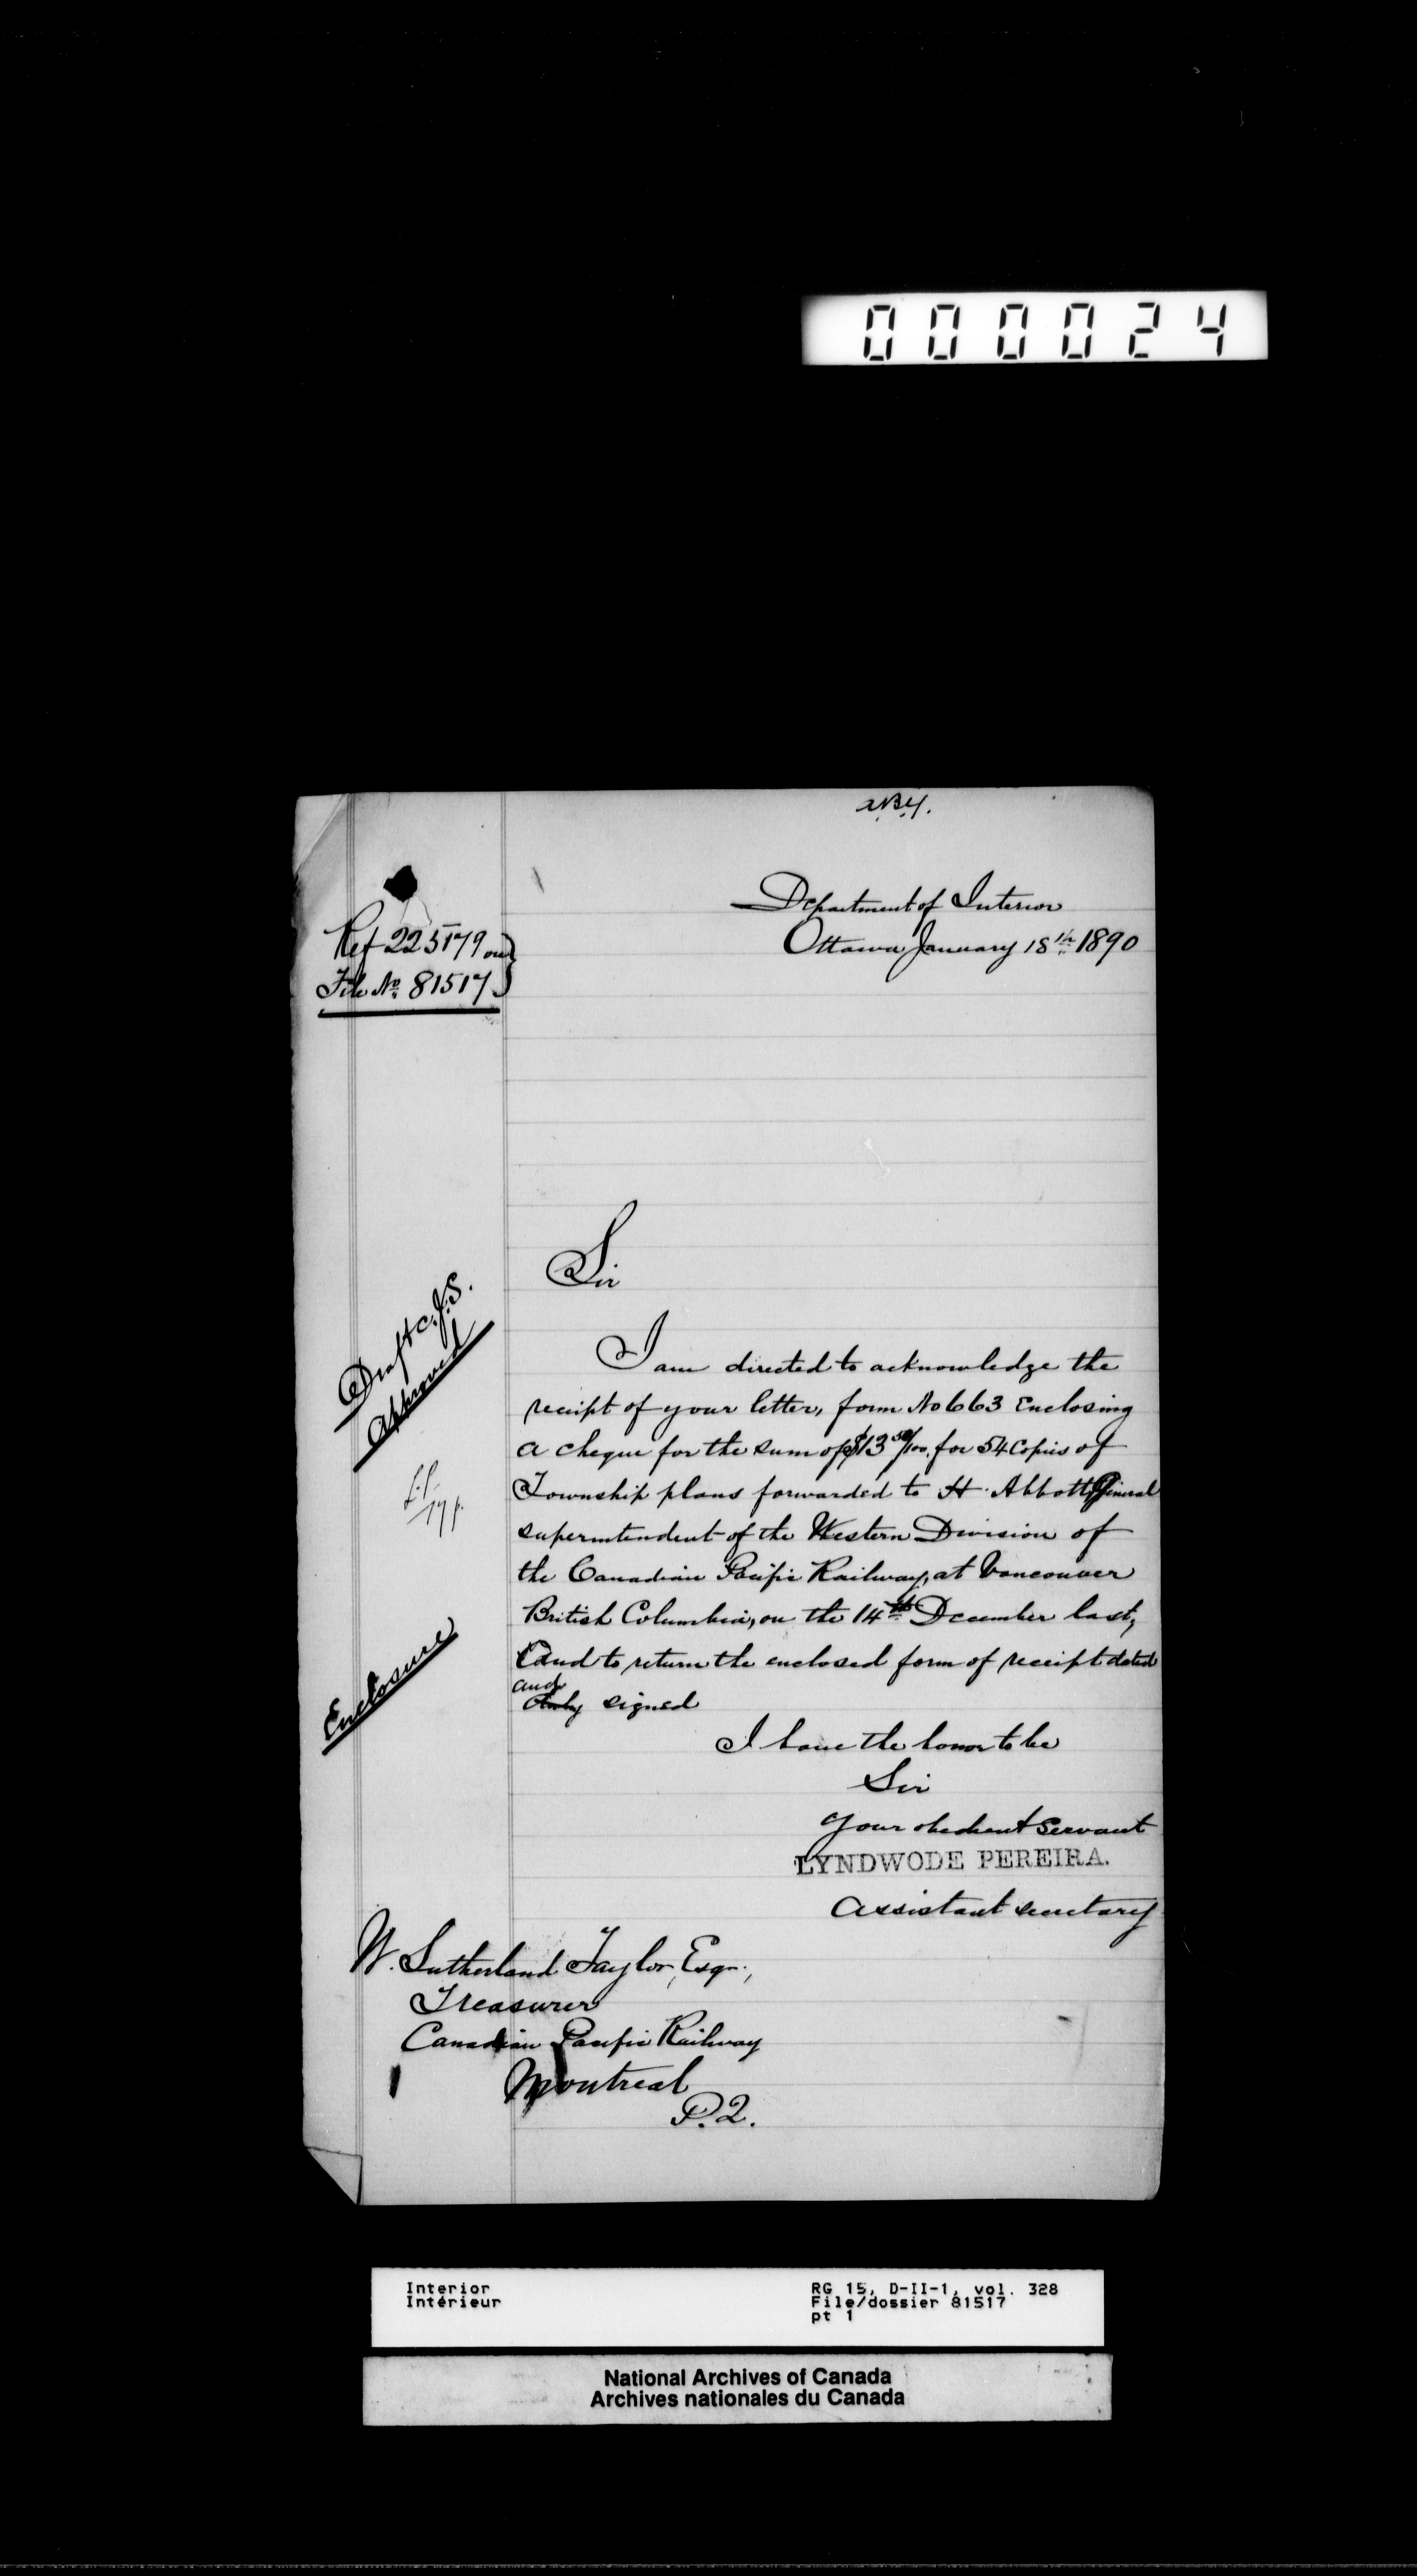 000024
Department of Interior
Ottawa January 18th 1890
Ref 225179 on
File No. 81517
Sir
Draft C.J.S.
Approved
I am directed to acknowledge the
receipt of your letter, form No 663 Enclosing
a cheque for the sum of $13 50/100 for 54 Copies of
Township plans forwarded to H. Abbott General
superintendent of the Western Division of
the Canadian Pacific Railway, at Vancouver
British Columbia, on the 14th December last,
and to return the enclosed form of receipt dated
and
duly signed
Enclosure
I have the honor to be
Sir
Your obedient Servant
LYNDWODE PEREIRA.
Assistant secretary
W. Sutherland Taylor, Esqr.,
Treasurer
Canadian Pacific Railway
Montreal
P.2.
Interior
Intérieur
RG 15, D-II-1, vol. 328
File/dossier 81517
pt 1
National Archives of Canada
Archives nationales du Canada